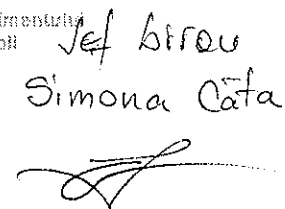 Șef birou
Simona Căta